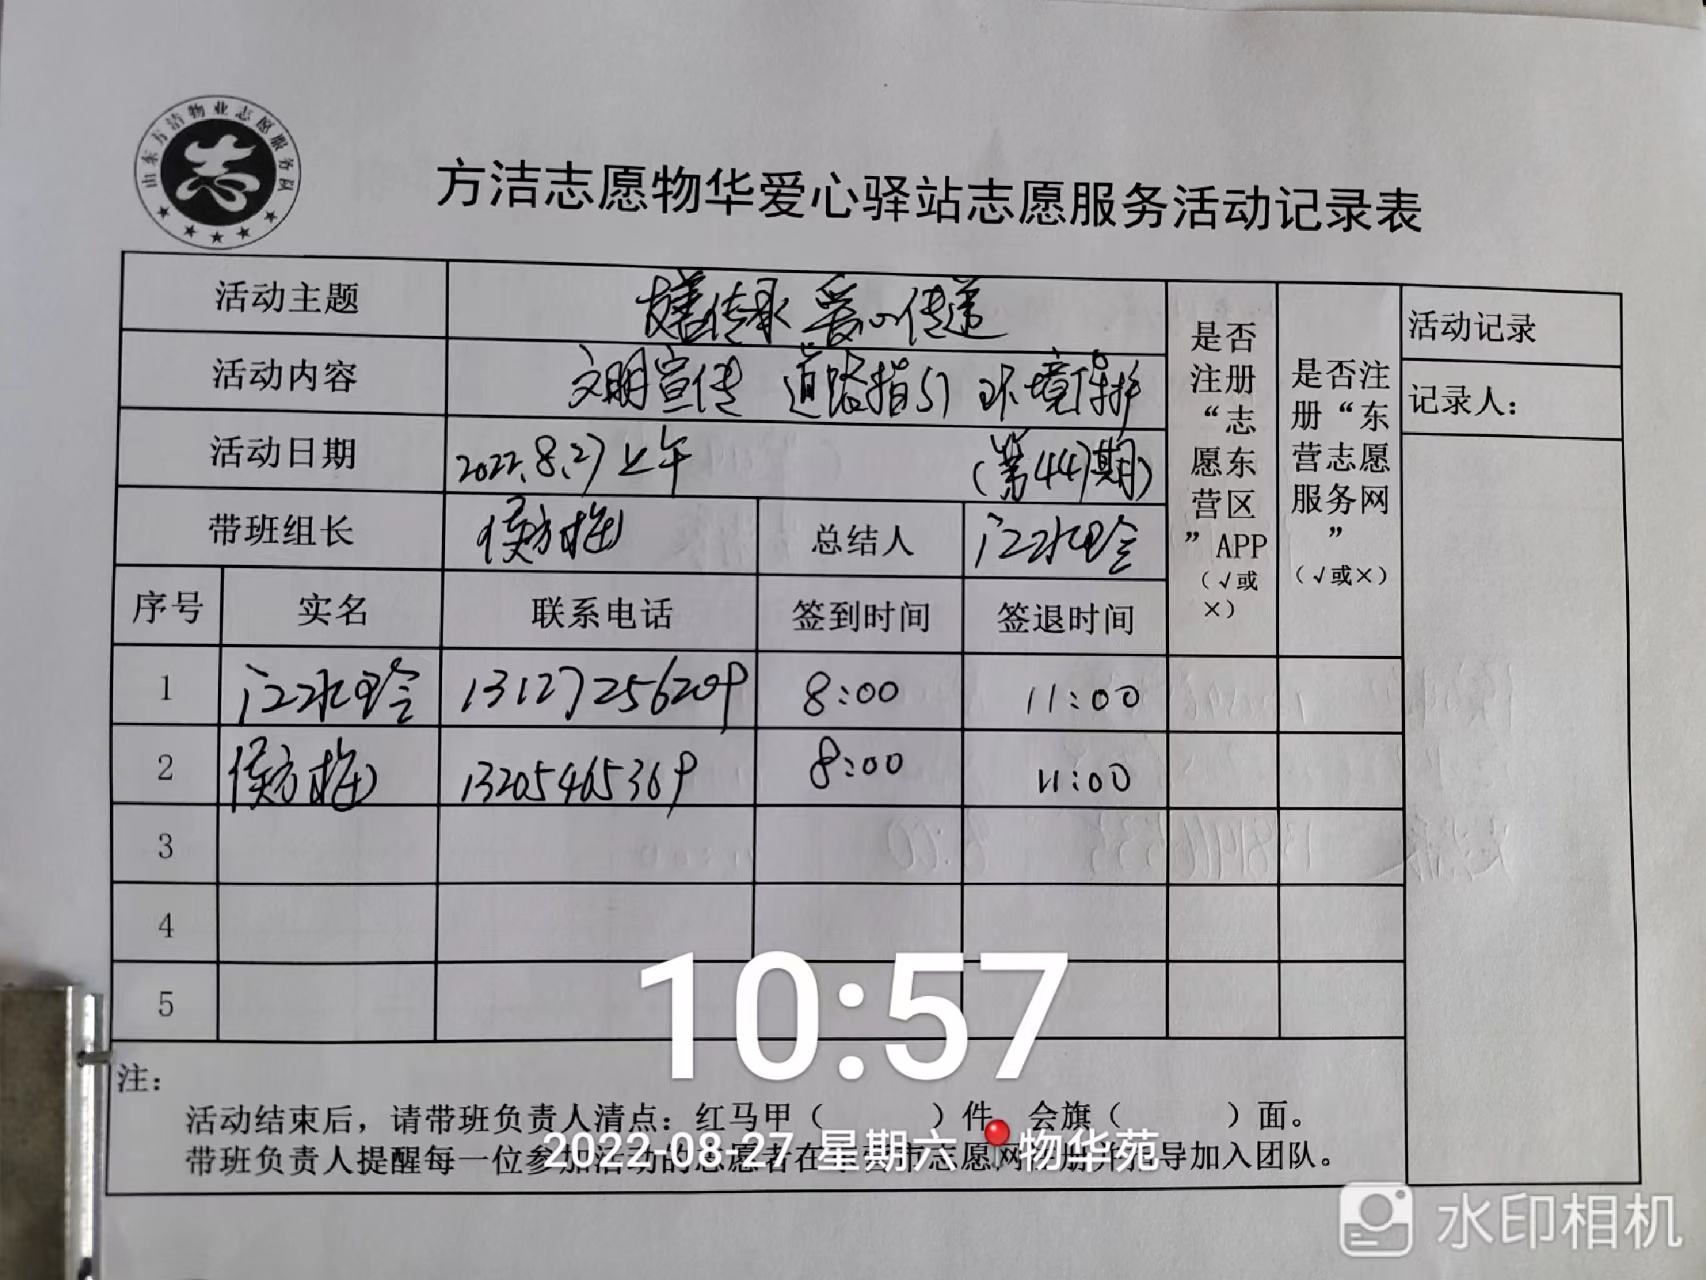 山东方洁物业志愿服务队
志
方洁志愿物华爱心驿站志愿服务活动记录表
活动主题 传承 爱心传递
活动内容 文明宣传 道路指引 环境保护
活动日期 2022.8.27上午 (第447期)
带班组长 侯方梅 总结人 江水玲
序号 实名 联系电话 签到时间 签退时间
是否注册“志愿东营区”APP(√或×)
是否注册“东营志愿服务网”(√或×)
活动记录
记录人：
1 江水玲 13127256209 8:00 11:00
2 侯方梅 13205465369 8:00 11:00
3
4
5
注：
活动结束后，请带班负责人清点：红马甲（ ）件 会旗（ ）面。
带班负责人提醒每一位参加活动的志愿者在东营市志愿网注册并指导加入团队。
10:57
2022-08-27 星期六 物华苑
水印相机